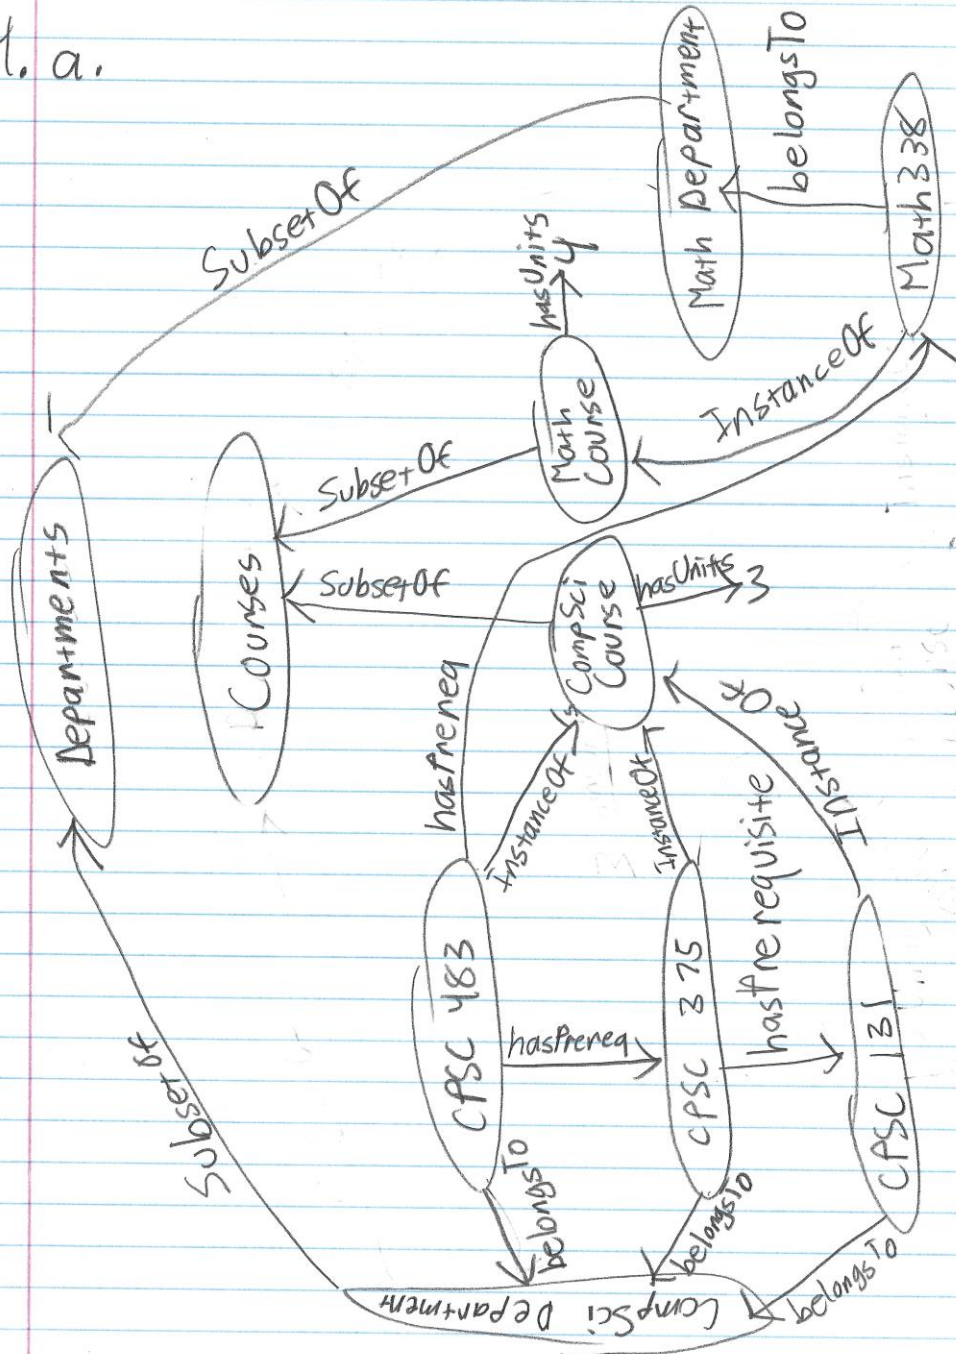 1. a.
Departments
SubsetOf
SubsetOf
Courses
SubsetOf
SubsetOf
Math
Course
hasUnits
4
Math Department
belongsTo
Math 338
InstanceOf
CompSci
Course
hasUnits
3
hasPrereq
InstanceOf
InstanceOf
Instance
Of
CPSC 483
hasPrereq
CPSC 375
hasPrerequisite
CPSC 131
belongsTo
belongsTo
belongsTo
CompSci Department